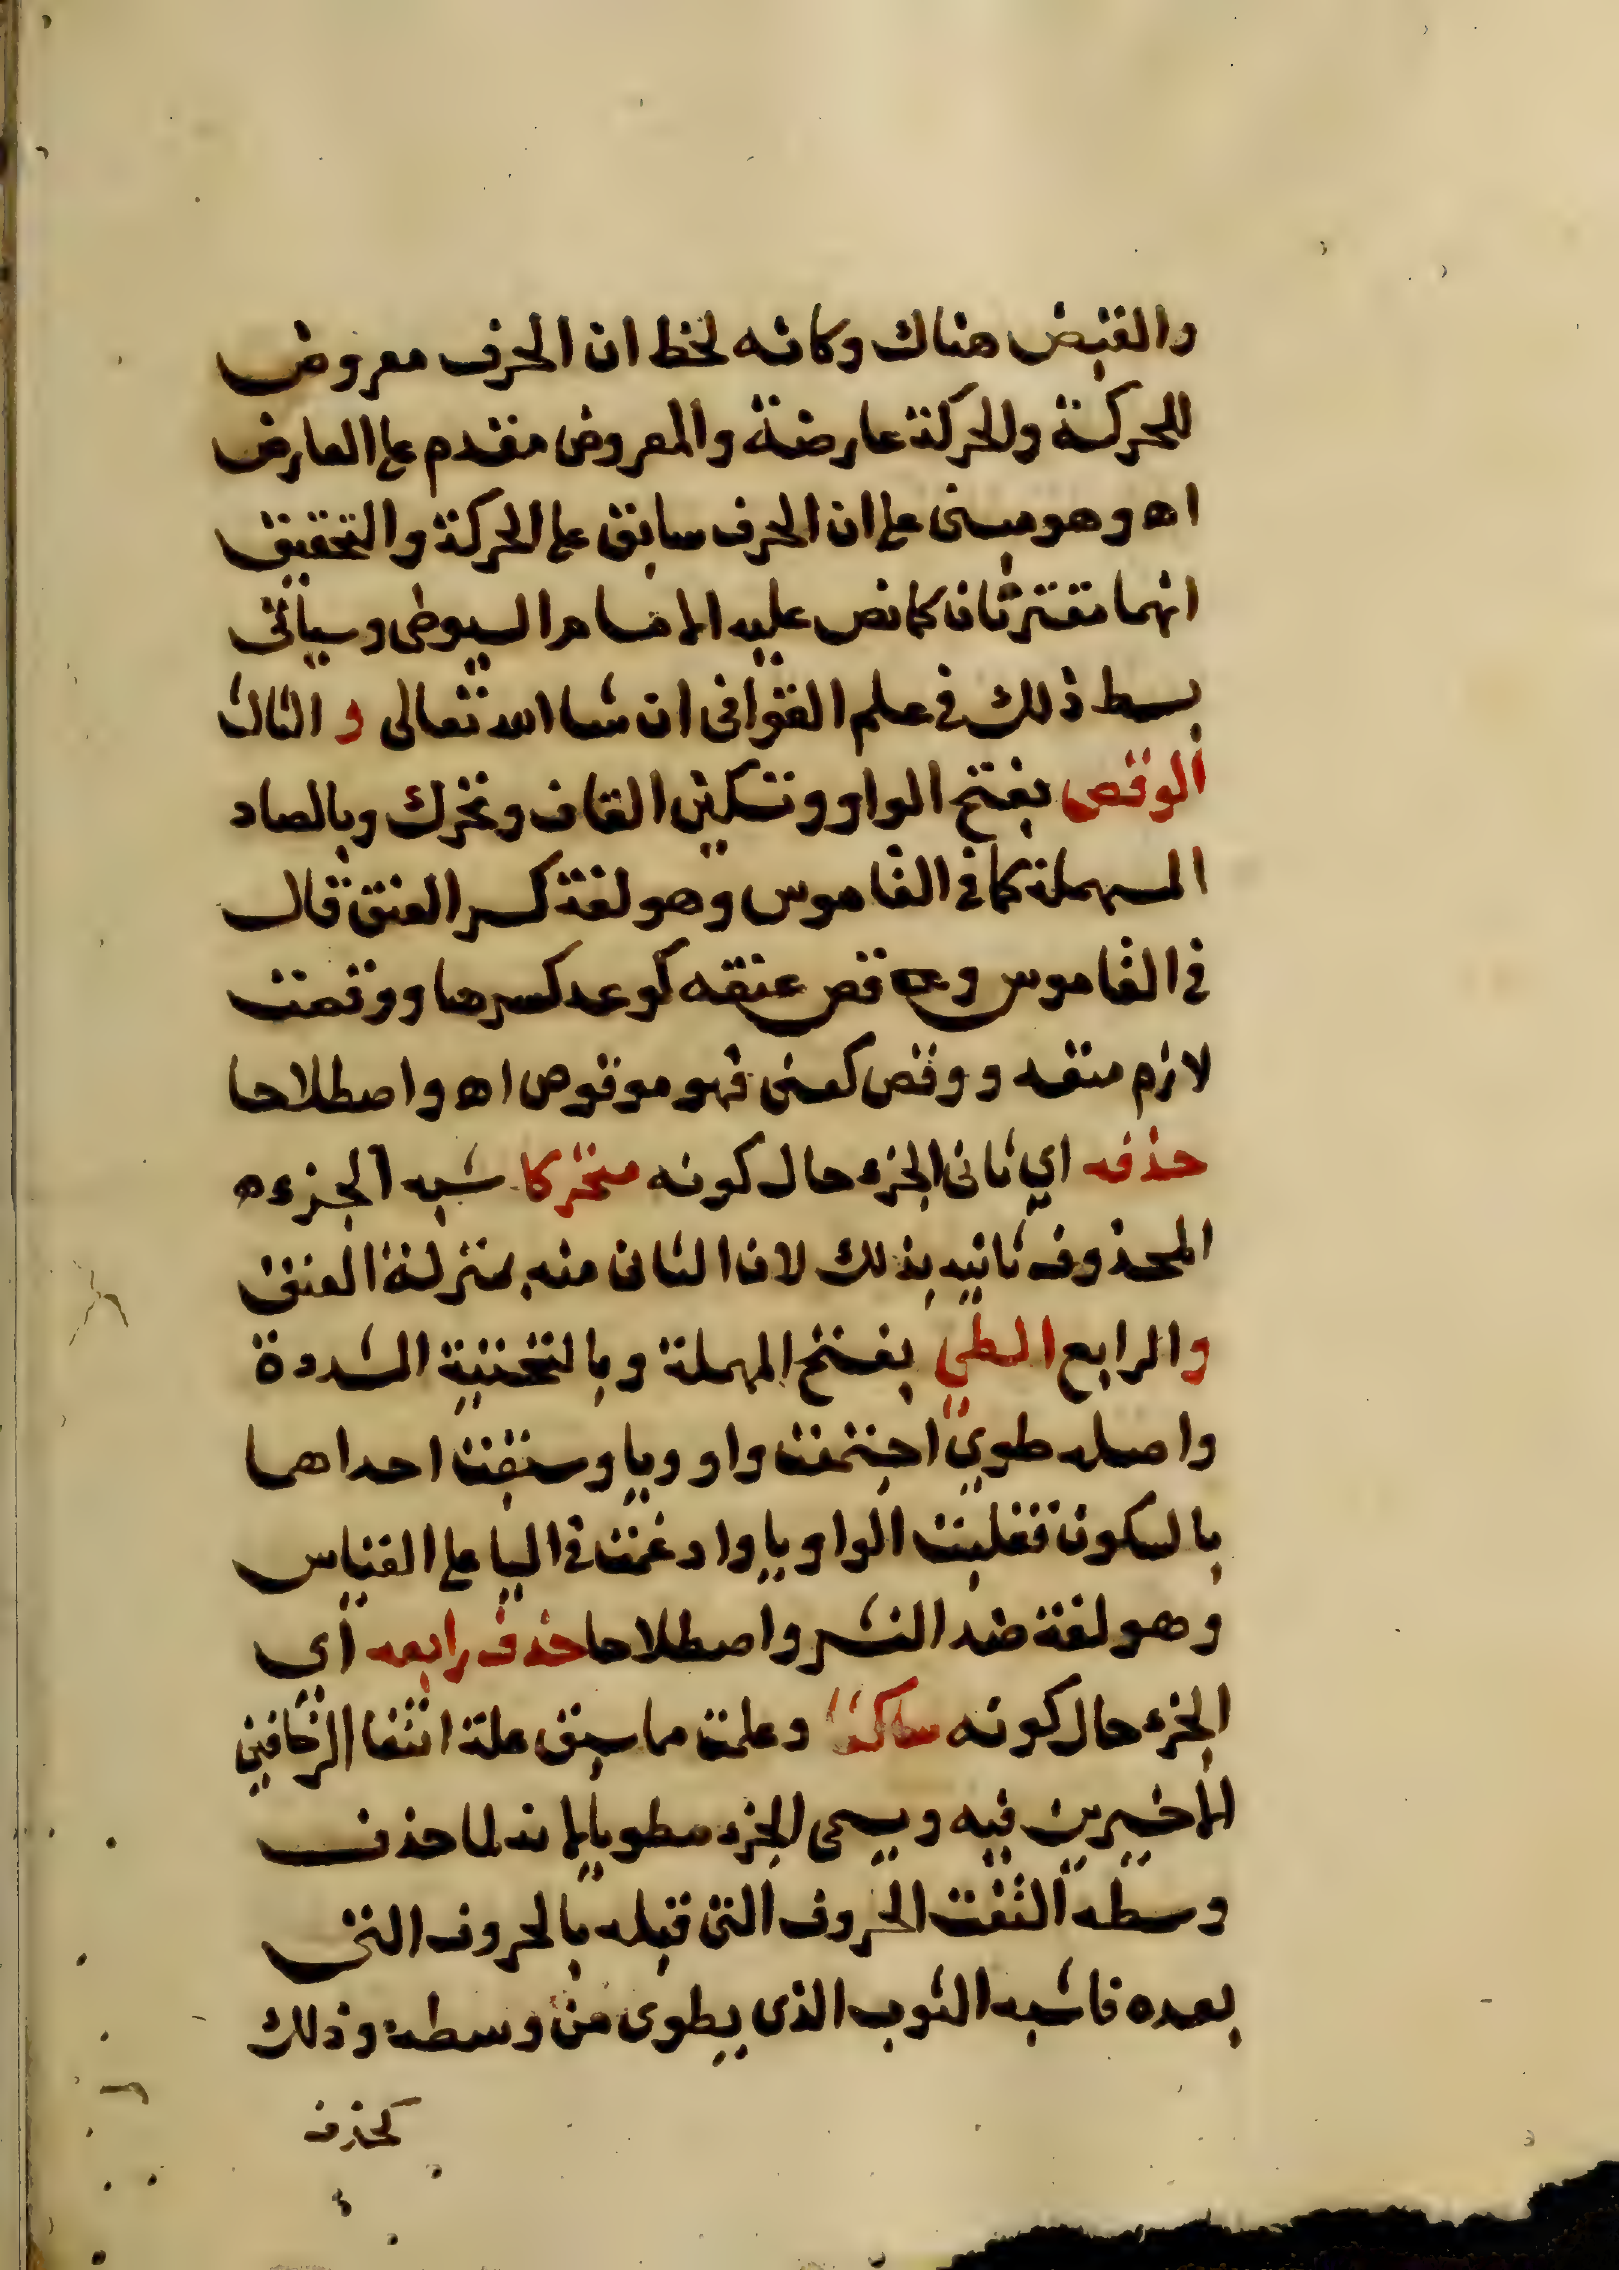 والقبض هناك وكانه لحظ ان الحرف معروض
للحركة والحركة عارضة والمعروض مقدم على العارض
اه وهو مبنى على ان الحرف سابق على الحركة والتحقيق
انهما مقترنان كما نص عليه الامام السيوطى وسياتى
بسط ذلك فى علم القوافى ان شا الله تعالى و الثالث
الوقص بفتح الواو وتسكين القاف وتحرك وبالصاد
المهملة كما فى القاموس وهو لغة كسر العنق قال
فى القاموس وقص عنقه كوعد كسرها ووقصت
لازم متعد ووقص كعنى فهو موقوص اه واصطلاحا
حذفه اي ثانى الجزء حال كونه متحركا شبه الجزء ه
المحذوف ثانيه بذلك لان الثانى منه بمنزلة العنق
والرابع الطي بفتح المهملة وبالتحتية المشددة
واصله طوي اجتمعت واو ويا وسبقت احداهما
بالسكون فقلبت الواو يا وادغمت فى اليا على القياس
وهو لغة ضد النشر واصطلاحا حذف رابعه اي
الجزء حال كونه ساكنا وعلمت مما سبق علة انتفا الزحافين
الاخيرين فيه ويسمى الجزء مطويا لانه لما حذف
وسطه التفت الحروف التى قبله بالحروف التى
بعده فاشبه الثوب الذى يطوى من وسطه وذلك
كحذف